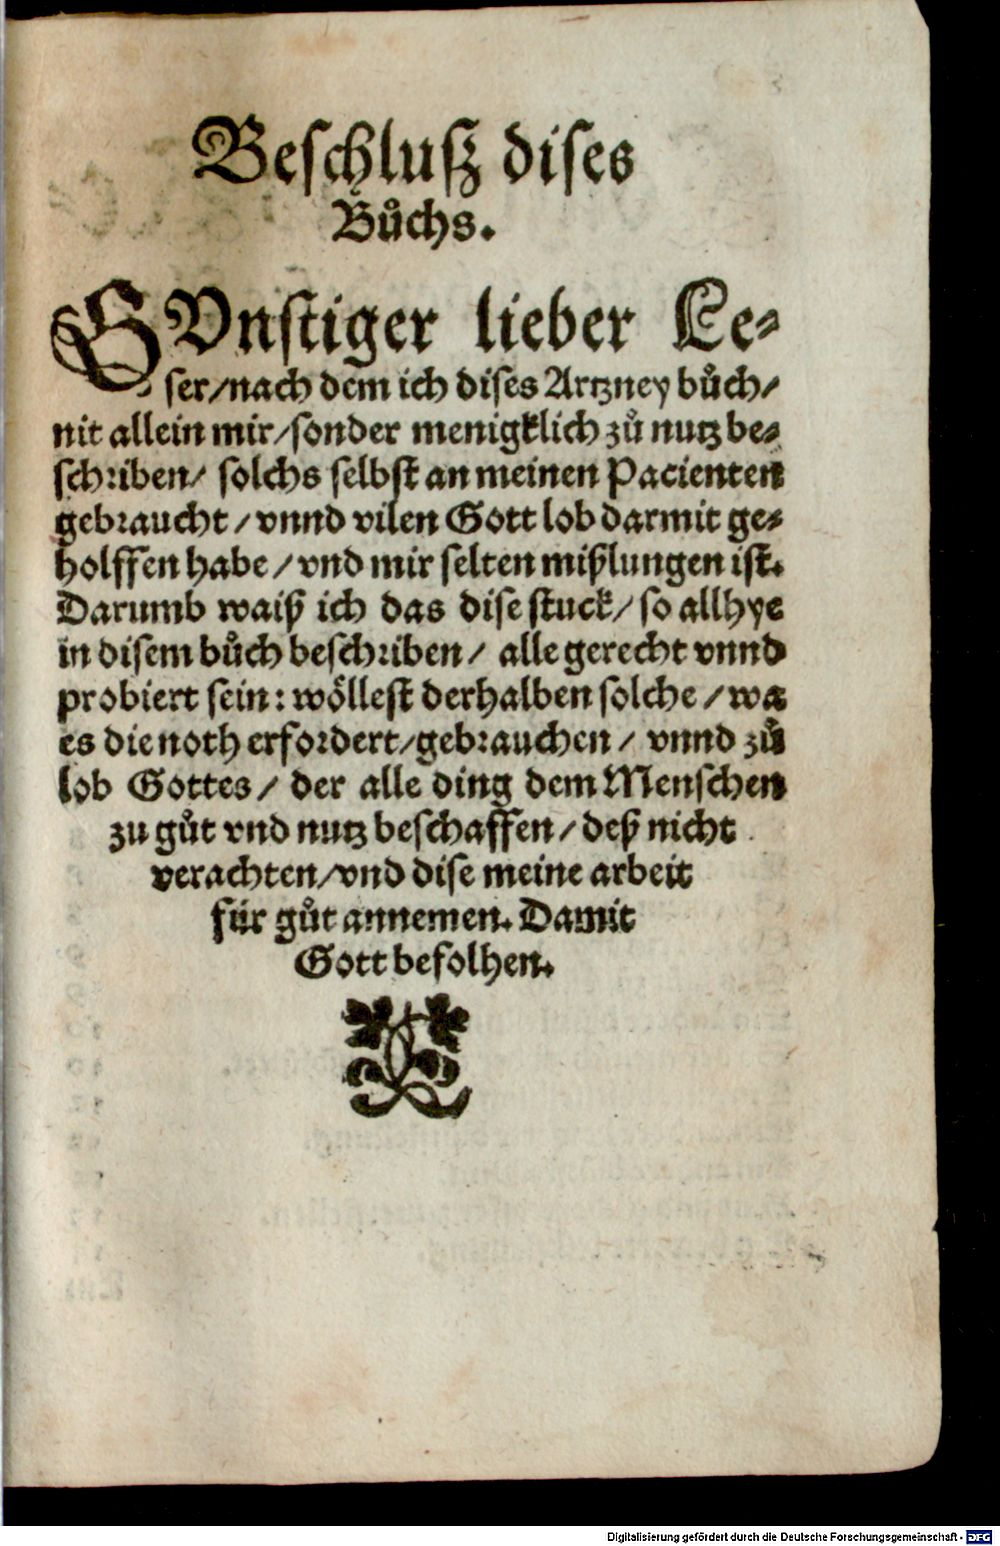 Beschluß dises
Bůchs.
GVnstiger lieber Le⸗
ser/nach dem ich dises Artzney bůch/
nit allein mir/sonder menigklich zů nutz be⸗
schriben/ solchs selbst an meinen Pacienten
gebraucht/vnnd vilen Gott lob darmit ge⸗
holffen habe/vnd mir selten mißlungen ist.
Darumb waiß ich das dise stuck/so allhye
in disem bůch beschriben/ alle gerecht vnnd
probiert sein: wöllest derhalben solche/wa
es die noth erfordert/gebrauchen/ vnnd zů
lob Gottes/ der alle ding dem Menschen
zu gůt vnd nutz beschaffen/deß nicht
verachten/vnd dise meine arbeit
für gůt annemen. Damit
Gott befolhen.
Digitalisierung gefördert durch die Deutsche Forschungsgemeinschaft - DFG